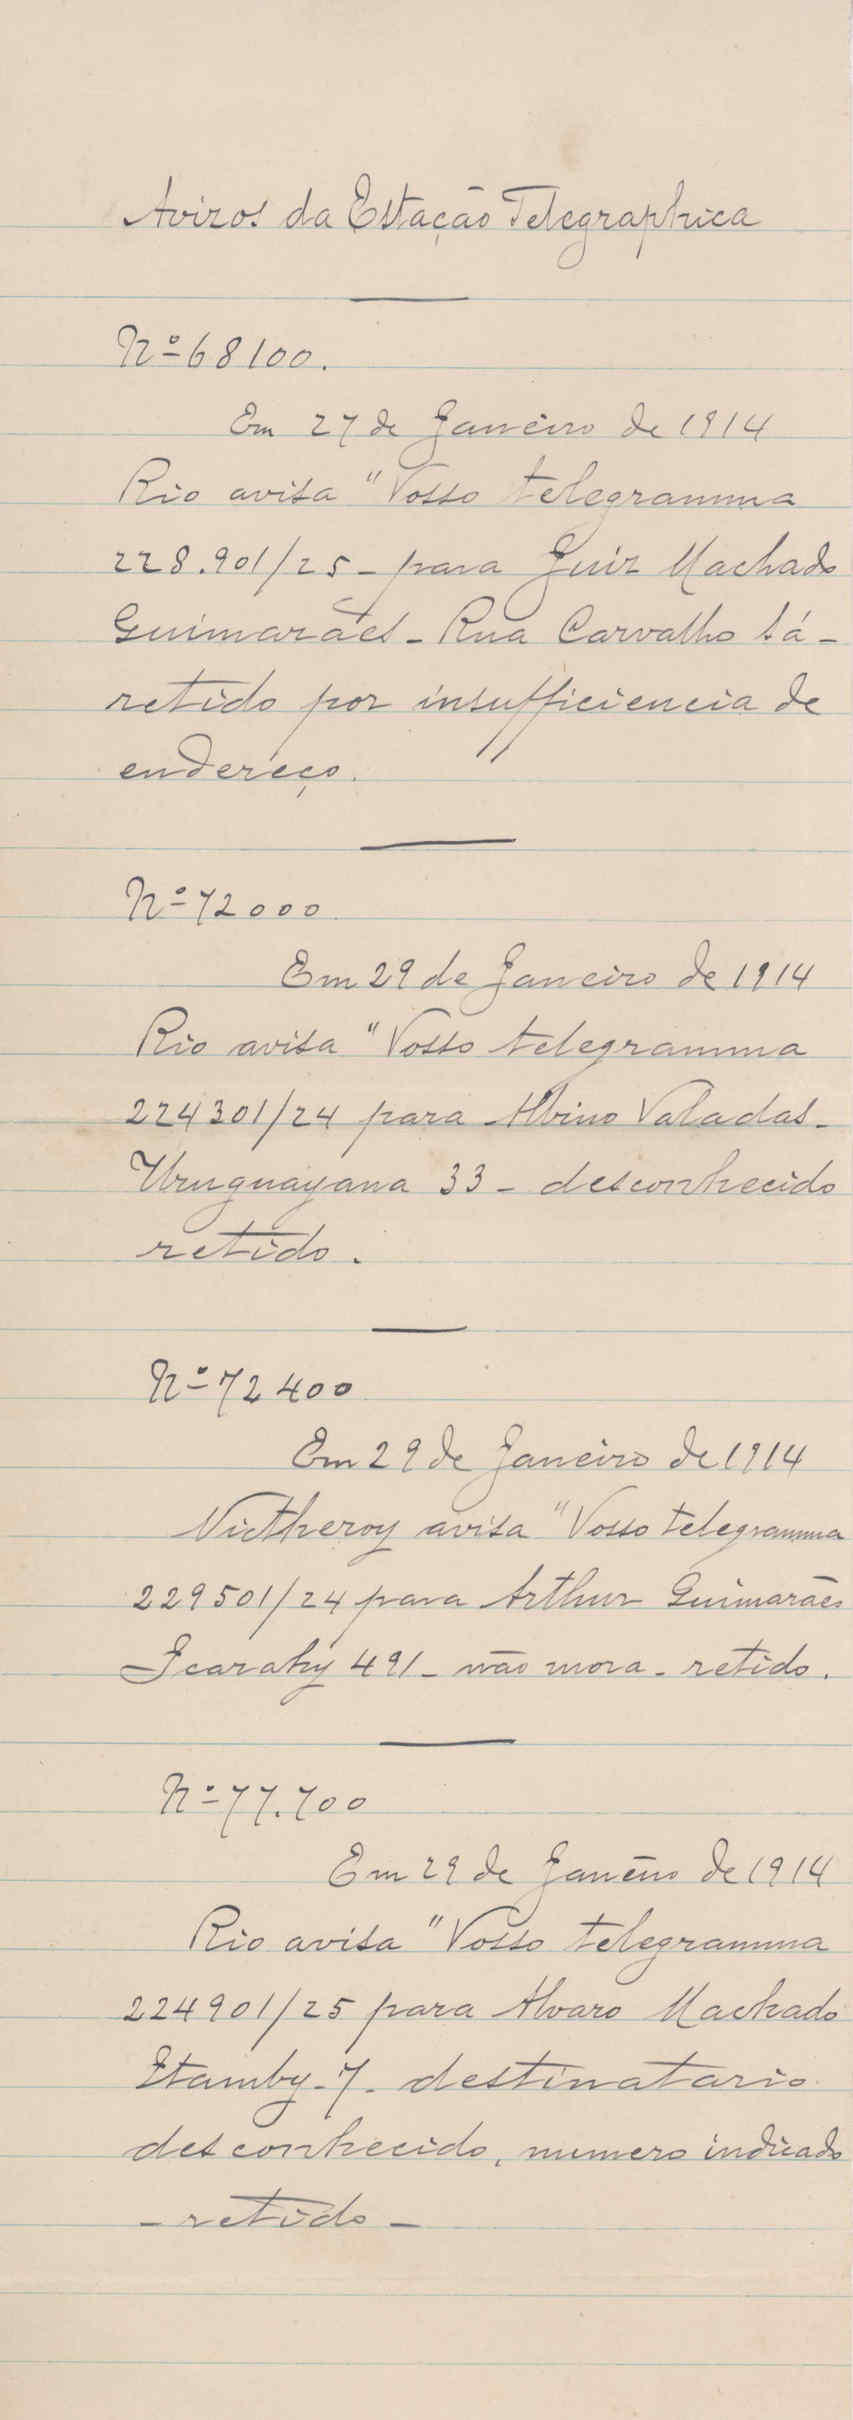 Avizos da Estação Telegraphica
Nº 68100.
Em 27 de Janeiro de 1914
Rio avisa "Vosso telegramma
228.901/25 - para Luiz Machado
Guimarães - Rua Carvalho Sá -
retido por insufficiencia de
endereço.
Nº 72000
Em 29 de Janeiro de 1914
Rio avisa "Vosso telegramma
224301/24 para Albino Valadas -
Uruguayana 33 - desconhecido
retido.
Nº 72400
Em 29 de Janeiro de 1914
Nictheroy avisa "Vosso telegramma
229501/24 para Arthur Guimarães
Icarahy 491 - não mora - retido.
Nº 77.700
Em 29 de Janeiro de 1914
Rio avisa "Vosso telegramma
224901/25 para Alvaro Machado
Itamby - 7 - destinatario
desconhecido, numero indicado
- retido -